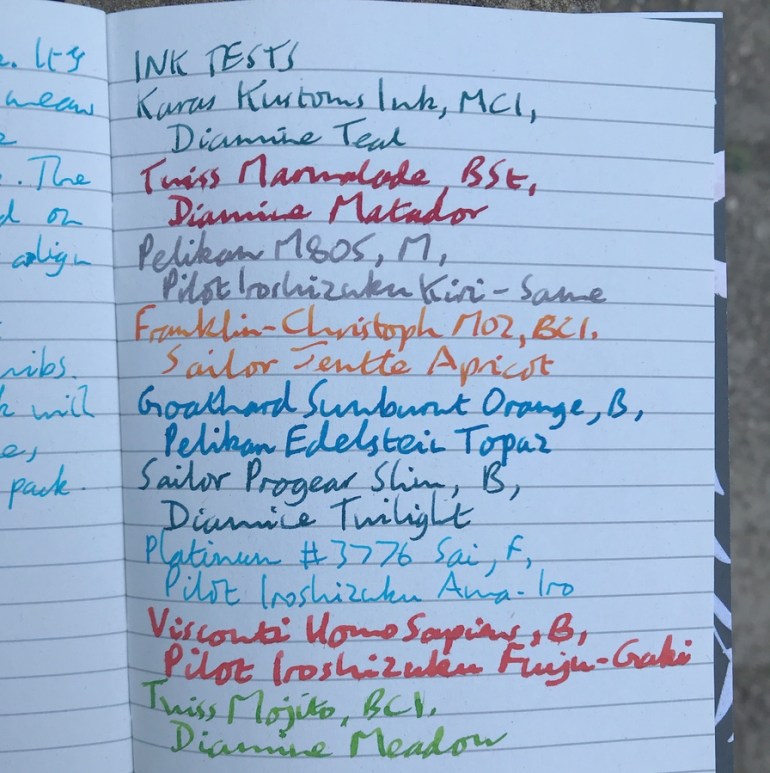 . Its
INK TESTS
mean
Karas Kustoms Ink, MCI,
Diamine Teal
. The
Twiss Marmalade, BSt,
d on
Diamine Matador
align
Pelikan M805, M,
Pilot Iroshizuku Kiri-Same
Franklin-Christoph M02, BCI.
Sailor Jentle Apricot
nibs.
will
Goathard Sunburnt Orange, B,
Pelikan Edelstein Topaz
pack.
Sailor Progear Slim, B,
Diamine Twilight
Platinum #3776 Sai, F,
Pilot Iroshizuku Ama-Iro
Visconti Homo Sapiens, B,
Pilot Iroshizuku Fuyu-Gaki
Twiss Mojito, BCI.
Diamine Meadow